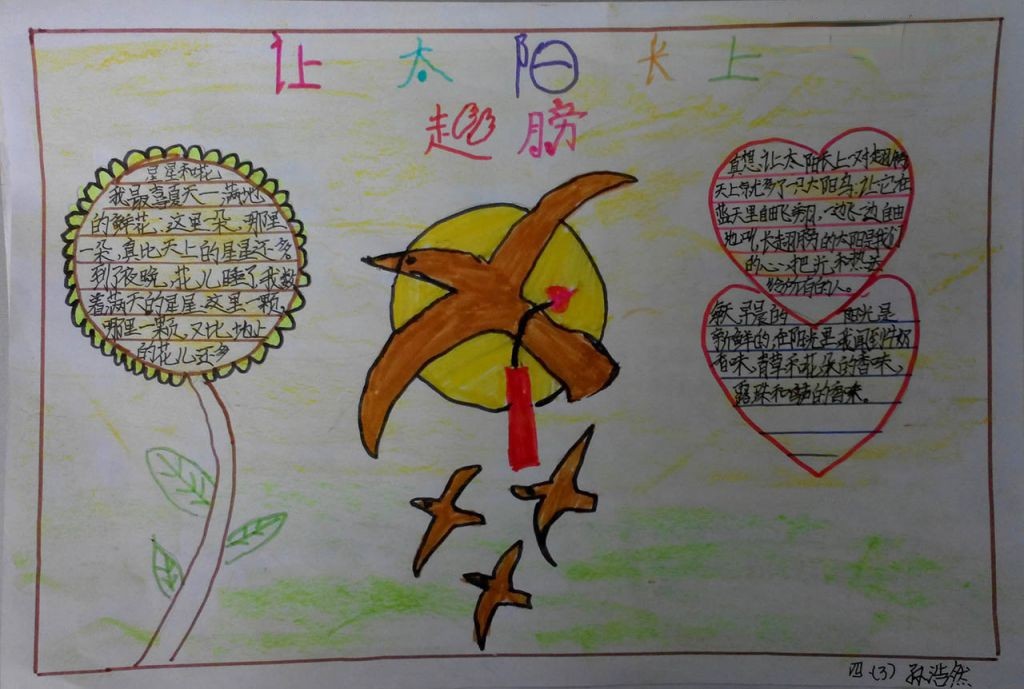 让太阳长上
翅膀
星星和花
我最喜夏天一满地
的鲜花:这里一朵,那里
一朵,真比天上的星星还多
到了夜晚,花儿睡了我数
着满天的星星这里一颗,
哪里一颗,又比地上
的花儿还多
真想让太阳长上一对翅膀
天上就多了一只太阳鸟,让它在
蓝天里自由飞翔,一边飞一边自由
地叫,长翅膀的太阳是我们
的心把光和热去
给所有的人。
每天早晨的 阳光是
新鲜的,在阳光里我闻到牛奶
香味,青草和花朵的香味,
露珠和 的香味。
四(3)孙浩然